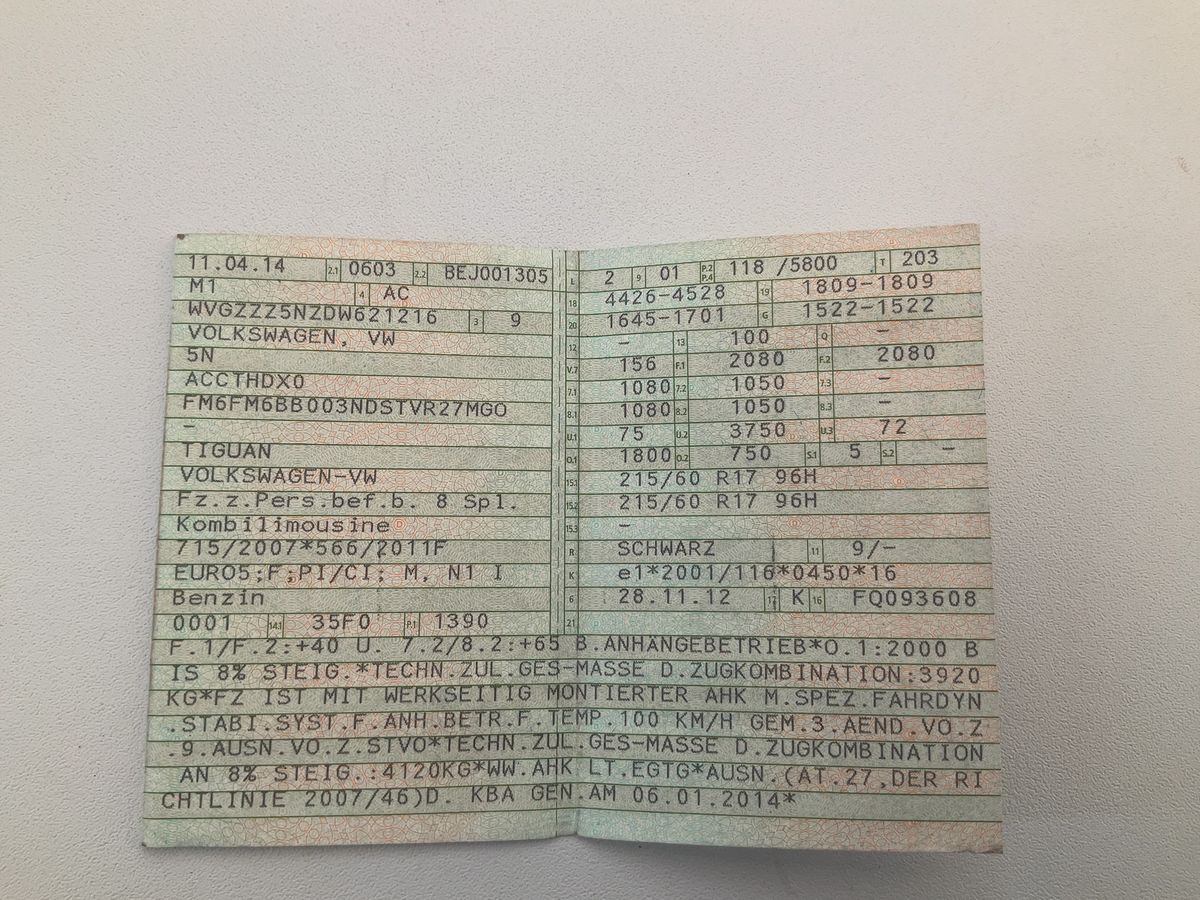 11.04.14 2.1 0603 2.2 BEJ001305
M1 4 AC
WVGZZZ5NZDW621216 3 9
VOLKSWAGEN, VW
5N
ACCTHDX0
FM6FM6BB003NDSTVR27MGO
–
TIGUAN
VOLKSWAGEN-VW
Fz.z.Pers.bef.b. 8 Spl.
Kombilimousine
715/2007*566/2011F
EURO5;F;PI/CI; M, N1 I
Benzin
0001 14.1 35F0 P.1 1390
L 2 9 01 P.2 P.4 118 /5800 T 203
18 4426-4528 19 1809-1809
20 1645-1701 G 1522-1522
12 – 13 100 Q –
V.7 156 F.1 2080 F.2 2080
7.1 1080 7.2 1050 7.3 –
8.1 1080 8.2 1050 8.3 –
U.1 75 U.2 3750 U.3 72
O.1 1800 O.2 750 S.1 5 S.2 –
15.1 215/60 R17 96H
15.2 215/60 R17 96H
15.3 –
R SCHWARZ 11 9/–
K e1*2001/116*0450*16
6 28.11.12 17 K 16 FQ093608
21
F.1/F.2:+40 U. 7.2/8.2:+65 B.ANHÄNGEBETRIEB*O.1:2000 B
IS 8% STEIG.*TECHN.ZUL.GES-MASSE D.ZUGKOMBINATION:3920
KG*FZ IST MIT WERKSEITIG MONTIERTER AHK M.SPEZ.FAHRDYN
.STABI.SYST.F.ANH.BETR.F.TEMP.100 KM/H GEM.3.AEND.VO.Z
.9.AUSN.VO.Z.STVO*TECHN.ZUL.GES-MASSE D.ZUGKOMBINATION
AN 8% STEIG.:4120KG*WW.AHK LT.EGTG*AUSN.(AT.27,DER RI
CHTLINIE 2007/46)D. KBA GEN.AM 06.01.2014*